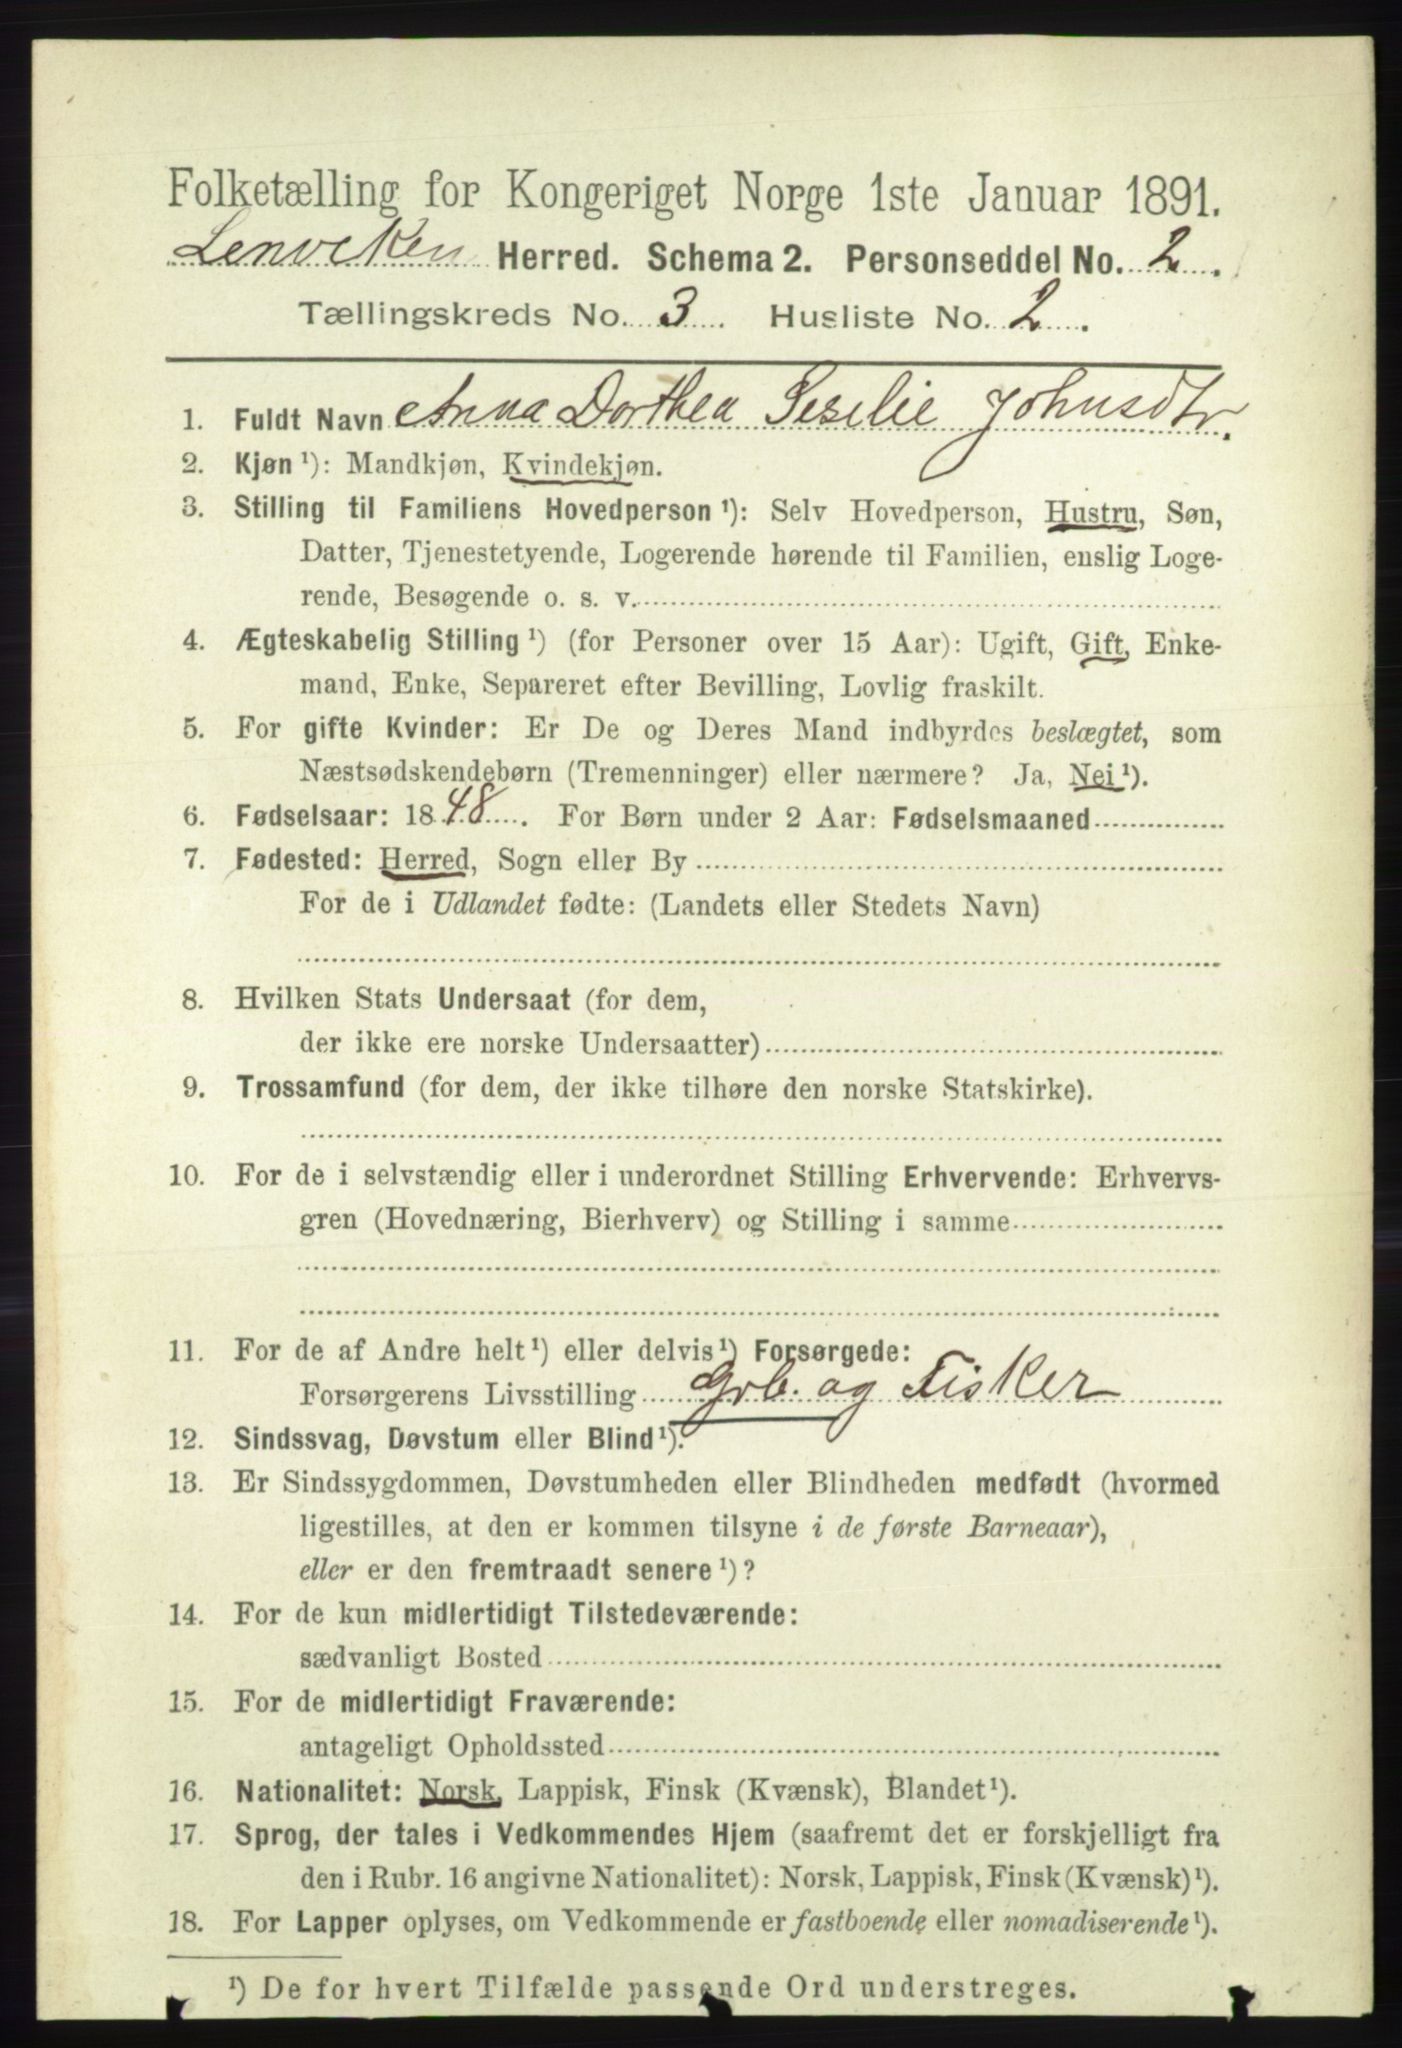 Folketælling for Kongeriget Norge 1ste Januar 1891.
Lenviken Herred. Schema 2. Personseddel No. 2.
Tællingskreds No. 3. Husliste No. 2.
1. Fuldt Navn Anna Dorthea Seselie Johnsdtr.
2. Kjøn ¹): Mandkjøn, Kvindekjøn.
3. Stilling til Familiens Hovedperson ¹): Selv Hovedperson, Hustru, Søn,
Datter, Tjenestetyende, Logerende hørende til Familien, enslig Loge-
rende, Besøgende o. s. v.
4. Ægteskabelig Stilling ¹) (for Personer over 15 Aar): Ugift, Gift, Enke-
mand, Enke, Separeret efter Bevilling, Lovlig fraskilt.
5. For gifte Kvinder: Er De og Deres Mand indbyrdes beslægtet, som
Næstsødskendebørn (Tremenninger) eller nærmere? Ja, Nei ¹).
6. Fødselsaar: 1848. For Børn under 2 Aar: Fødselsmaaned
7. Fødested: Herred, Sogn eller By
For de i Udlandet fødte: (Landets eller Stedets Navn)
8. Hvilken Stats Undersaat (for dem,
der ikke ere norske Undersaatter)
9. Trossamfund (for dem, der ikke tilhøre den norske Statskirke).
10. For de i selvstændig eller i underordnet Stilling Erhvervende: Erhvervs-
gren (Hovednæring, Bierhverv) og Stilling i samme
11. For de af Andre helt ¹) eller delvis ¹) Forsørgede:
Forsørgerens Livsstilling Grb. og Fisker
12. Sindssvag, Døvstum eller Blind ¹).
13. Er Sindssygdommen, Døvstumheden eller Blindheden medfødt (hvormed
ligestilles, at den er kommen tilsyne i de første Barneaar),
eller er den fremtraadt senere ¹)?
14. For de kun midlertidigt Tilstedeværende:
sædvanligt Bosted
15. For de midlertidigt Fraværende:
antageligt Opholdssted
16. Nationalitet: Norsk, Lappisk, Finsk (Kvænsk), Blandet ¹).
17. Sprog, der tales i Vedkommendes Hjem (saafremt det er forskjelligt fra
den i Rubr. 16 angivne Nationalitet): Norsk, Lappisk, Finsk (Kvænsk) ¹).
18. For Lapper oplyses, om Vedkommende er fastboende eller nomadiserende ¹).
¹) De for hvert Tilfælde passende Ord understreges.